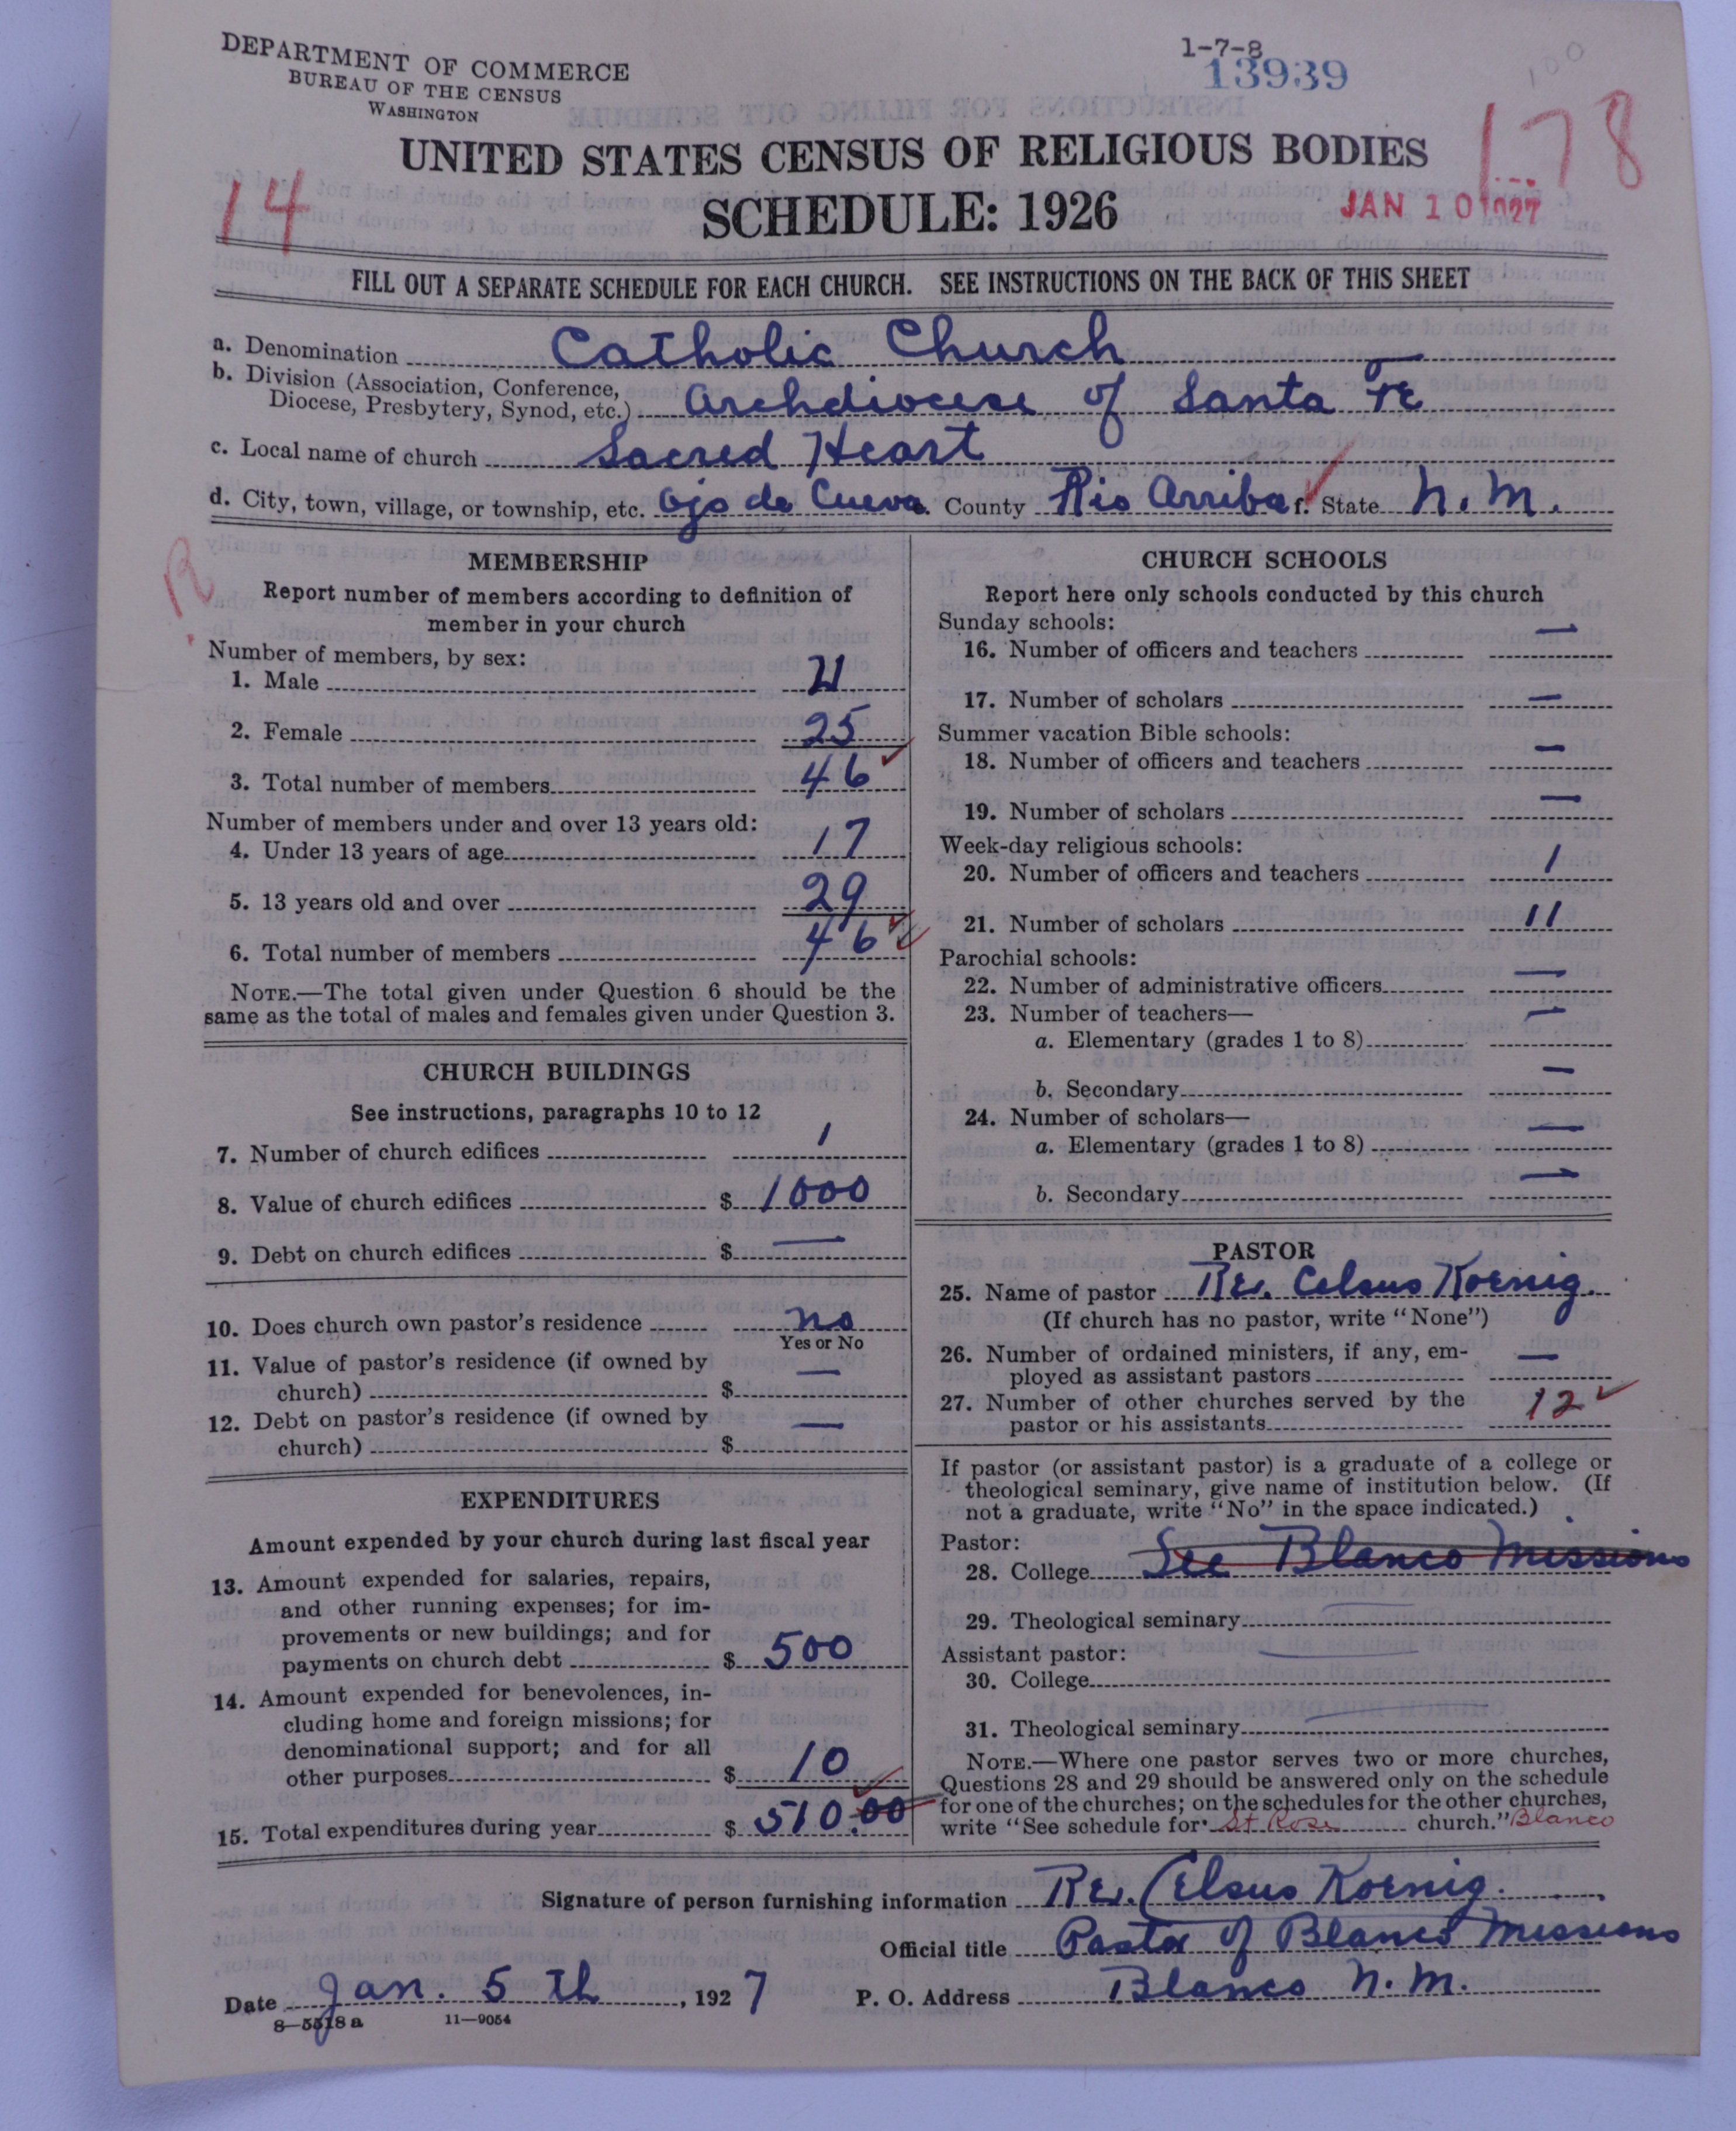 DEPARTMENT OF COMMERCE
BUREAU OF THE CENSUS
WASHINGTON
1-7-8
13939
100
178
14
UNITED STATES CENSUS OF RELIGIOUS BODIES
SCHEDULE: 1926
JAN 10 1927
FILL OUT A SEPARATE SCHEDULE FOR EACH CHURCH. SEE INSTRUCTIONS ON THE BACK OF THIS SHEET
a. Denomination Catholic Church
b. Division (Association, Conference,
Diocese, Presbytery, Synod, etc.) Archdiocese of Santa Fe
c. Local name of church Sacred Heart
d. City, town, village, or township, etc. Ojo de Cueva e. County Rio Arriba f. State N. M.
R
MEMBERSHIP
Report number of members according to definition of
member in your church
Number of members, by sex:
1. Male 21
2. Female 25
3. Total number of members 46
Number of members under and over 13 years old:
4. Under 13 years of age 17
5. 13 years old and over 29
6. Total number of members 46
NOTE.—The total given under Question 6 should be the
same as the total of males and females given under Question 3.
CHURCH BUILDINGS
See instructions, paragraphs 10 to 12
7. Number of church edifices 1
8. Value of church edifices $ 1000
9. Debt on church edifices $ —
10. Does church own pastor's residence no
Yes or No
11. Value of pastor's residence (if owned by
church) $ —
12. Debt on pastor's residence (if owned by
church) $ —
EXPENDITURES
Amount expended by your church during last fiscal year
13. Amount expended for salaries, repairs,
and other running expenses; for im-
provements or new buildings; and for
payments on church debt $ 500
14. Amount expended for benevolences, in-
cluding home and foreign missions; for
denominational support; and for all
other purposes $ 10
15. Total expenditures during year $ 510.00
CHURCH SCHOOLS
Report here only schools conducted by this church
Sunday schools:
16. Number of officers and teachers —
17. Number of scholars —
Summer vacation Bible schools:
18. Number of officers and teachers —
19. Number of scholars —
Week-day religious schools:
20. Number of officers and teachers 1
21. Number of scholars 11
Parochial schools:
22. Number of administrative officers —
23. Number of teachers—
a. Elementary (grades 1 to 8) —
b. Secondary —
24. Number of scholars—
a. Elementary (grades 1 to 8) —
b. Secondary —
PASTOR
25. Name of pastor Rev. Celsus Koenig.
(If church has no pastor, write "None")
26. Number of ordained ministers, if any, em-
ployed as assistant pastors —
27. Number of other churches served by the
pastor or his assistants 12
If pastor (or assistant pastor) is a graduate of a college or
theological seminary, give name of institution below. (If
not a graduate, write "No" in the space indicated.)
Pastor:
28. College See Blanco Missions
29. Theological seminary —
Assistant pastor:
30. College —
31. Theological seminary —
NOTE.—Where one pastor serves two or more churches,
Questions 28 and 29 should be answered only on the schedule
for one of the churches; on the schedules for the other churches,
write "See schedule for St Rose church." Blanco
Signature of person furnishing information Rev. Celsus Koenig.
Official title Pastor of Blanco Missions
Date Jan. 5 th, 1927 P. O. Address Blanco N. M.
8—5518 a 11—9054